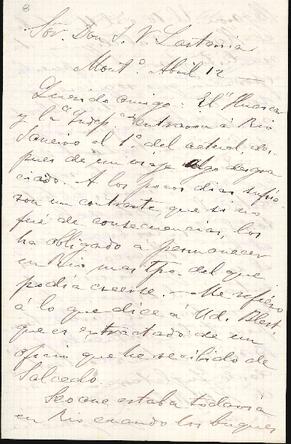 8
Sor. Don J. V. Lastarria
Monto. Abril 12
Querido amigo: El "Huascar"
y la "Indepa" entraron á Rio
Janeiro el 1o. del actual des-
pues de un viaje algo desgra-
ciado. A los pocos dias sufrie
ron un contraste, que si no
fué de consecuencias, los
ha obligado á permanecer
en Rio mas tpo. del que
podia creerse. - Me refiero
á lo que dice á Ud. Blest,
que es extractado de un
oficio que he recibido de
Salcedo.
Seoane estaba todavia
en Rio cuando los buques